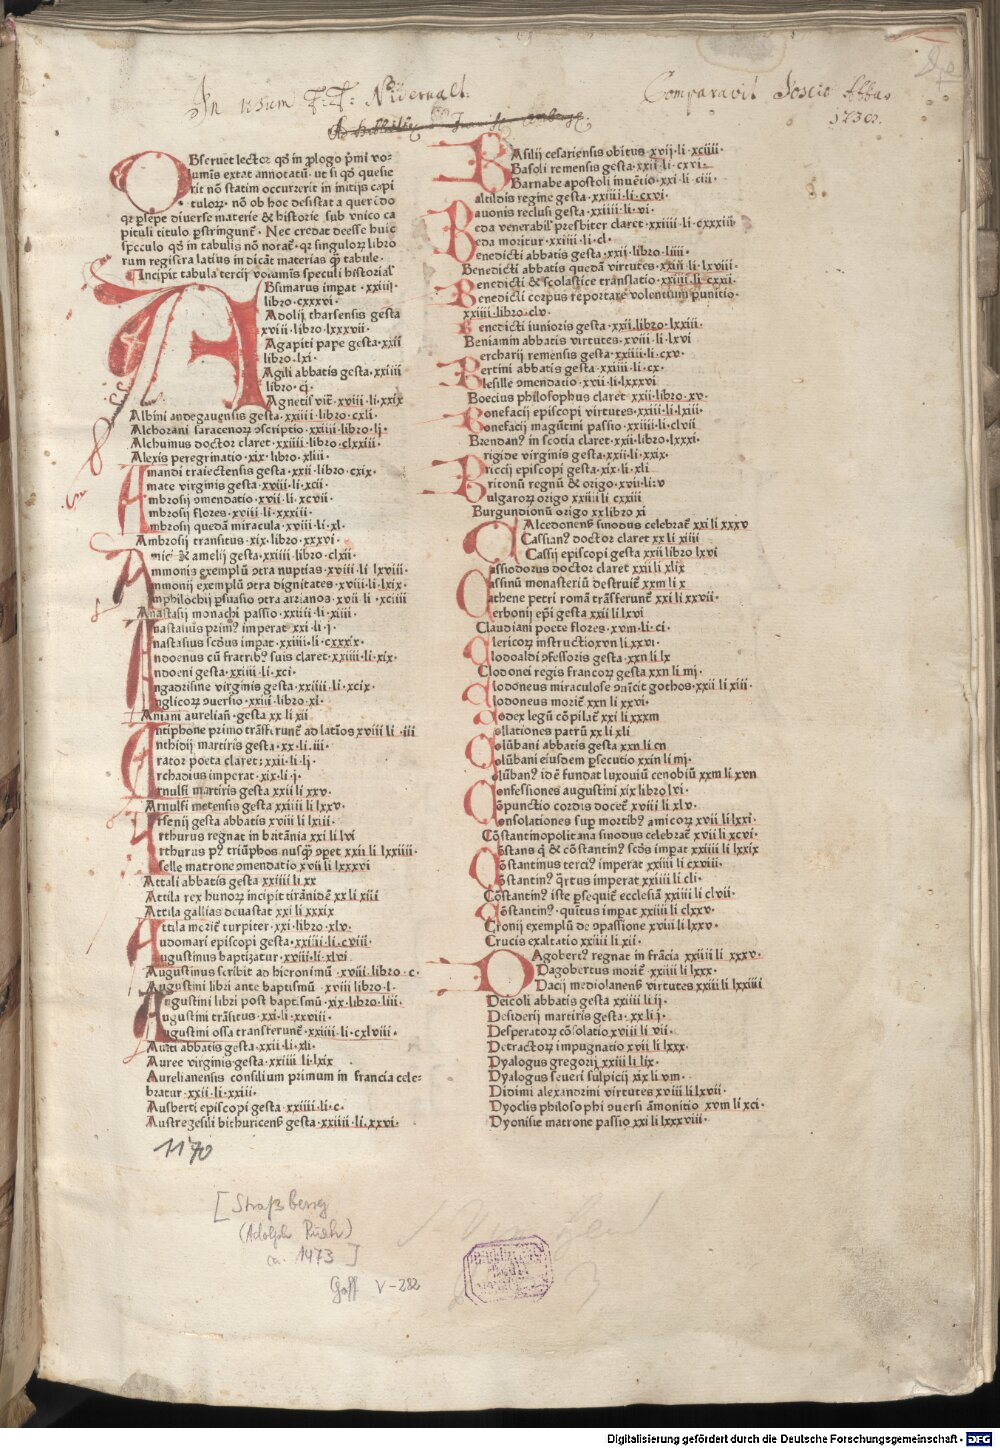 In usum F. F. Nidernalt.
Comparavit Joscio Abbas
1730.
Obseruet lector qd in plogo pmi vo-
lumis extat annotatū. ut si qd quesie
rit nō statim occurrerit in initijs capi
tulorꝝ. nō ob hoc desistat a querēdo
qr psepe diuerse materie & historie sub vnico ca
pituli titulo pstringunt̄. Nec credat deesse huic
speculo qd in tabulis nō notat̄. qr singulorꝝ libro
rum registra latius in dicāt materias q̄ tabule.
Incipit tabula tercij voluminis speculi historial̄
ABsimarus impat · xxiiij·
libro·cxxxvi·
Adolij tharsensis gesta
xviii·libro·lxxxvii·
Agapiti pape gesta·xxii
libro·lxi·
Agili abbatis gesta·xxiiii
libro·cj·
Agnetis vite·xviii·li·lxxix
Albini andegauensis gesta·xxiiii·libro·cxli·
Alchorani saracenorꝝ ꝯscriptio·xxiiii·libro·lj·
Alchuinus doctor claret·xxiiii·libro·clxxiii·
Alexis peregrinatio·xix·libro·xliii·
Amandi traiectensis gesta·xxii·libro·cxix·
Amate virginis gesta·xviii·li·xcii·
Ambrosij ꝯmendatio·xvii·li·xcvii·
Ambrosij flores·xviii·li·xxxiii·
Ambrosij quedā miracula·xviii·li·xl·
Ambrosij transitus·xix·libro·xxxvi·
Amici & amelij gesta·xxiiii·libro·clxii·
Ammonis exemplū ꝯtra nuptias·xviii·li·lxviii·
Ammonij exemplū ꝯtra dignitates·xviii·li·lxix·
Amphilochij psuasio ꝯtra arrianos·xvii·li·xciiii
Anastasij monachi passio·xxiiii·li·xiiii·
Anastasius primꝰ imperat·xxi·li·j·
Anastasius scd̄us impat·xxiiii·li·cxxxix·
Andoenus cū fratribꝰ suis claret·xxiiii·li·xix·
Andoeni gesta·xxiiii·li·xci·
Angadrisine virginis gesta·xxiiii·li·xcix·
Anglicorꝝ ꝯuersio·xxiii·libro·xi·
Aniani aurelian̄·gesta xx li xii
Antiphone primo trāsferunt̄ ad latīos xviii li·iii
Anthidij martiris gesta·xx·li·iii·
Arator poeta claret:xxii·li·lj·
Archadius imperat·xix·li·j·
Arnulfi martiris gesta xxii li xxv·
Arnulfi metensis gesta xxiiii li lxxv·
Arsenij gesta abbatis xviii li lxiii·
Arthurus regnat in britānia xxi li lvi
Arthurus pꝰ triūphos nusq̄ ꝯpet xxii li lxxiiii·
Aselle matrone ꝯmendatio xvii li lxxxvi
Attali abbatis gesta xxiiii li xx
Attila rex hunorꝝ incipit tirānide xx li xiii
Attila gallias deuastat xxi li xxxix
Attila morit̄ turpiter·xxi·libro·xlv·
Audomari episcopi gesta·xxiiii·li·cviii·
Augustinus baptizatur·xviii·li·xlvi
Augustinus scribit ad hieronimū·xviii·libro·c·
Augustini libri ante baptismū·xviii libro·l·
Augustini libri post baptismū·xix·libro·liii·
Augustini trāsitus·xxi·li·xxviii·
Augustini ossa transferunt̄·xxiiii·li·cxlviii·
Auiti abbatis gesta·xxii·li·xli·
Auree virginis gesta·xxiiii·li·lxix
Aurelianensis consilium primum in francia cele-
bratur·xxii·li·xxiii·
Ausberti episcopi gesta·xxiiii·li·c·
Austregesili bithuricens̄ gesta·xxiiii·li·xxvi·
Basilij cesariensis obitus·xvij·li·xciiii·
Basoli remensis gesta·xxii·li·cxvi·
Barnabe apostoli inuētio·xxi·li·ciii·
Batildis regine gesta·xxiiii·li·cxvi·
Bauonis reclusi gesta·xxiiii·li·vi·
Beda venerabil̄ presbiter claret·xxiiii·li·cxxxiii
Beda moritur·xxiiii·li·cl·
Benedicti abbatis gesta·xxij·libro·liiii·
Benedicti abbatis quedā virtutes·xxiii·li·lxviii·
Benedicti & scolastice translatio·xxiiii·li·cxxii·
Benedicti corpus reportare volentium punitio·
xxiiii·libro·clv·
Benedicti iunioris gesta·xxii·libro·lxxiii·
Beniamin abbatis virtutes·xviii·li·lxvi
Bercharij remensis gesta·xxiiii·li·cxv·
Bertini abbatis gesta·xxiiii·li·cx·
Blesille ꝯmendatio·xvii·li·lxxxvi
Boecius philosophus claret·xxii·libro·xv·
Bonefacij episcopi virtutes·xxiii·li·lxiii·
Bonefacij magūtini passio·xxiiii·li·clvii
Brendanꝰ in scotia claret·xxii·libro·lxxxi·
Brigide virginis gesta·xxii·li·xxix·
Briccij episcopi gesta·xix·li·xli
Britonū regnū & origo·xvii·li·v
Bulgarorꝝ origo xxiiii li cxxiii
Burgundionū origo xx libro xi
CAlcedonens̄ sinodus celebrat̄ xxi li xxxv
Cassianꝰ doctor claret xx li xiiii
Cassij episcopi gesta xxii libro lxvi
Cassiodorus doctor claret xxii li xlix
Cassinū monasteriū destruit̄ xxiii li x
Cathene petri romā trāsferunt̄ xxi li xxvii·
Cerbonij ep̄i gesta xxii li lxvi
Claudiani poete flores·xviii·li·ci·
Clericorꝝ instructio xvii li xxvi·
Clodoaldi ꝯfessoris gesta xxii li lx
Clodouei regis francorꝝ gesta xxii li iii·
Clodoneus miraculose ꝯuīcit gothos·xxii li xiii·
Clodoneus morit̄ xxii li xxvi·
Codex legū cōpilat̄ xxi li xxxiii
Collationes patrū xx li xli
Colūbani abbatis gesta xxii li cii
Colūbani eiusdem psecutio xxiii li iii·
Colūbanꝰ idē fundat luxouiū cenobiū xxiii li xvii
Confessiones augustini xix libro lvi·
Cōpunctio cordis docet̄ xviii li xlv·
Consolationes sup mortibꝰ amicorꝝ xvii li lxxi·
Cōstantinopolitana sinodus celebrat̄ xvii li xcvi·
Cōstans q̄ & cōstantinꝰ scd̄s impat xxiiii li lxxix
Cōstantinus tercꝰ imperat xxiiii li cxviii·
Cōstantinꝰ qrtus imperat xxiiii li cli·
Cōstantinꝰ iste psequit̄ ecclesiā xxiiii li clvii·
Cōstantinꝰ·quītus impat xxiiii li clxxv·
Cronij exemplū de ꝯpassione xviii li lxxv·
Crucis exaltatio xxiiii li xii·
DAgobertꝰ regnat in frācia xxiiii li xxxv·
Dagobertus morit̄ xxiiii li lxxx·
Dacij mediolanens̄ virtutes xxiii li lxxiiii
Deicoli abbatis gesta xxiiii li ij·
Desiderij martiris gesta·xx li j·
Desperatorꝝ cōsolatio xviii li vii·
Detractorꝝ impugnatio xvii li lxxx·
Dyalogus gregorij xxiii li lix·
Dyalogus seueri sulpicij xix li viii·
Didimi alexandrini virtutes xviii li lxvii·
Dyoclis philosophi ꝯuersi āmonitio xviii li xci·
Dyonisie matrone passio xxi li lxxxviii·
1170
[Straßberg
(Adolph Rusch)
ca. 1473]
Goff V-282
Digitalisierung gefördert durch die Deutsche Forschungsgemeinschaft - DFG